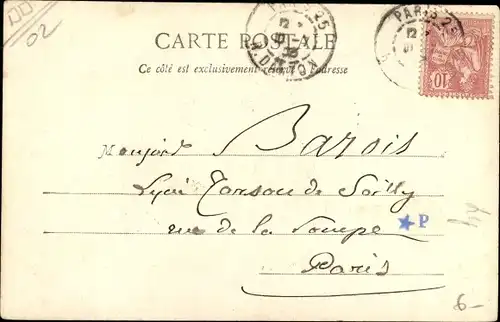 02
CARTE POSTALE
Ce côté est exclusivement réservé à l'adresse
PARIS 25
PARIS 25
10
Barois
Lycée Janson de Sailly
rue de la Pompe
★P
Paris
6-